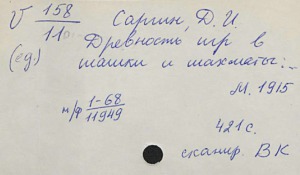 V 158 Саргин, Д. И.
11
(ед.) Древность игр в
шашки и шахматы:..
М. 1915
м/ф 1-68
11949
421 с.
сканир. ВК